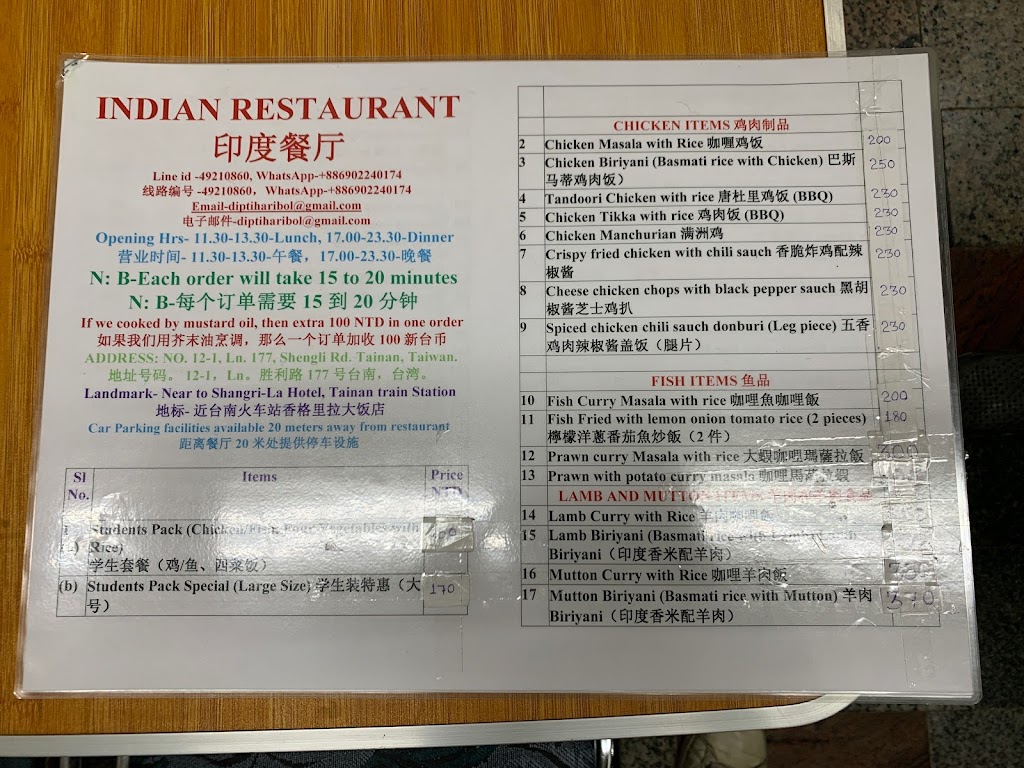 INDIAN RESTAURANT
印度餐厅
Line id -49210860, WhatsApp-+886902240174
线路编号 -49210860，WhatsApp-+886902240174
Email-diptiharibol@gmail.com
电子邮件-diptiharibol@gmail.com
Opening Hrs- 11.30-13.30-Lunch, 17.00-23.30-Dinner
营业时间- 11.30-13.30-午餐，17.00-23.30-晚餐
N: B-Each order will take 15 to 20 minutes
N: B-每个订单需要 15 到 20 分钟
If we cooked by mustard oil, then extra 100 NTD in one order
如果我们用芥末油烹调，那么一个订单加收 100 新台币
ADDRESS: NO. 12-1, Ln. 177, Shengli Rd. Tainan, Taiwan.
地址号码。 12-1，Ln。胜利路 177 号台南，台湾。
Landmark- Near to Shangri-La Hotel, Tainan train Station
地标- 近台南火车站香格里拉大饭店
Car Parking facilities available 20 meters away from restaurant
距离餐厅 20 米处提供停车设施
Sl Items Price
No. NTD
Students Pack (Chicken/Fish, Four Vegetables with
Rice)
学生套餐（鸡/鱼、四菜饭）
(b) Students Pack Special (Large Size) 学生装特惠（大 170
号）
CHICKEN ITEMS 鸡肉制品
2 Chicken Masala with Rice 咖喱鸡饭 200
3 Chicken Biriyani (Basmati rice with Chicken) 巴斯 250
马蒂鸡肉饭）
4 Tandoori Chicken with rice 唐杜里鸡饭 (BBQ) 230
5 Chicken Tikka with rice 鸡肉饭 (BBQ) 230
6 Chicken Manchurian 满洲鸡 230
7 Crispy fried chicken with chili sauch 香脆炸鸡配辣 230
椒酱
8 Cheese chicken chops with black pepper sauch 黑胡 230
椒酱芝士鸡扒
9 Spiced chicken chili sauch donburi (Leg piece) 五香 230
鸡肉辣椒酱盖饭（腿片）
FISH ITEMS 鱼品
10 Fish Curry Masala with rice 咖哩魚咖哩飯 200
11 Fish Fried with lemon onion tomato rice (2 pieces) 180
檸檬洋蔥番茄魚炒飯（2 件）
12 Prawn curry Masala with rice 大蝦咖哩瑪薩拉飯
13 Prawn with potato curry masala 咖哩馬
LAMB AND MUTTON ITEMS
14 Lamb Curry with Rice 羊肉咖哩飯
15 Lamb Biriyani (Basmati rice with Lamb)
Biriyani（印度香米配羊肉）
16 Mutton Curry with Rice 咖哩羊肉飯
17 Mutton Biriyani (Basmati rice with Mutton) 羊肉 370
Biriyani（印度香米配羊肉）